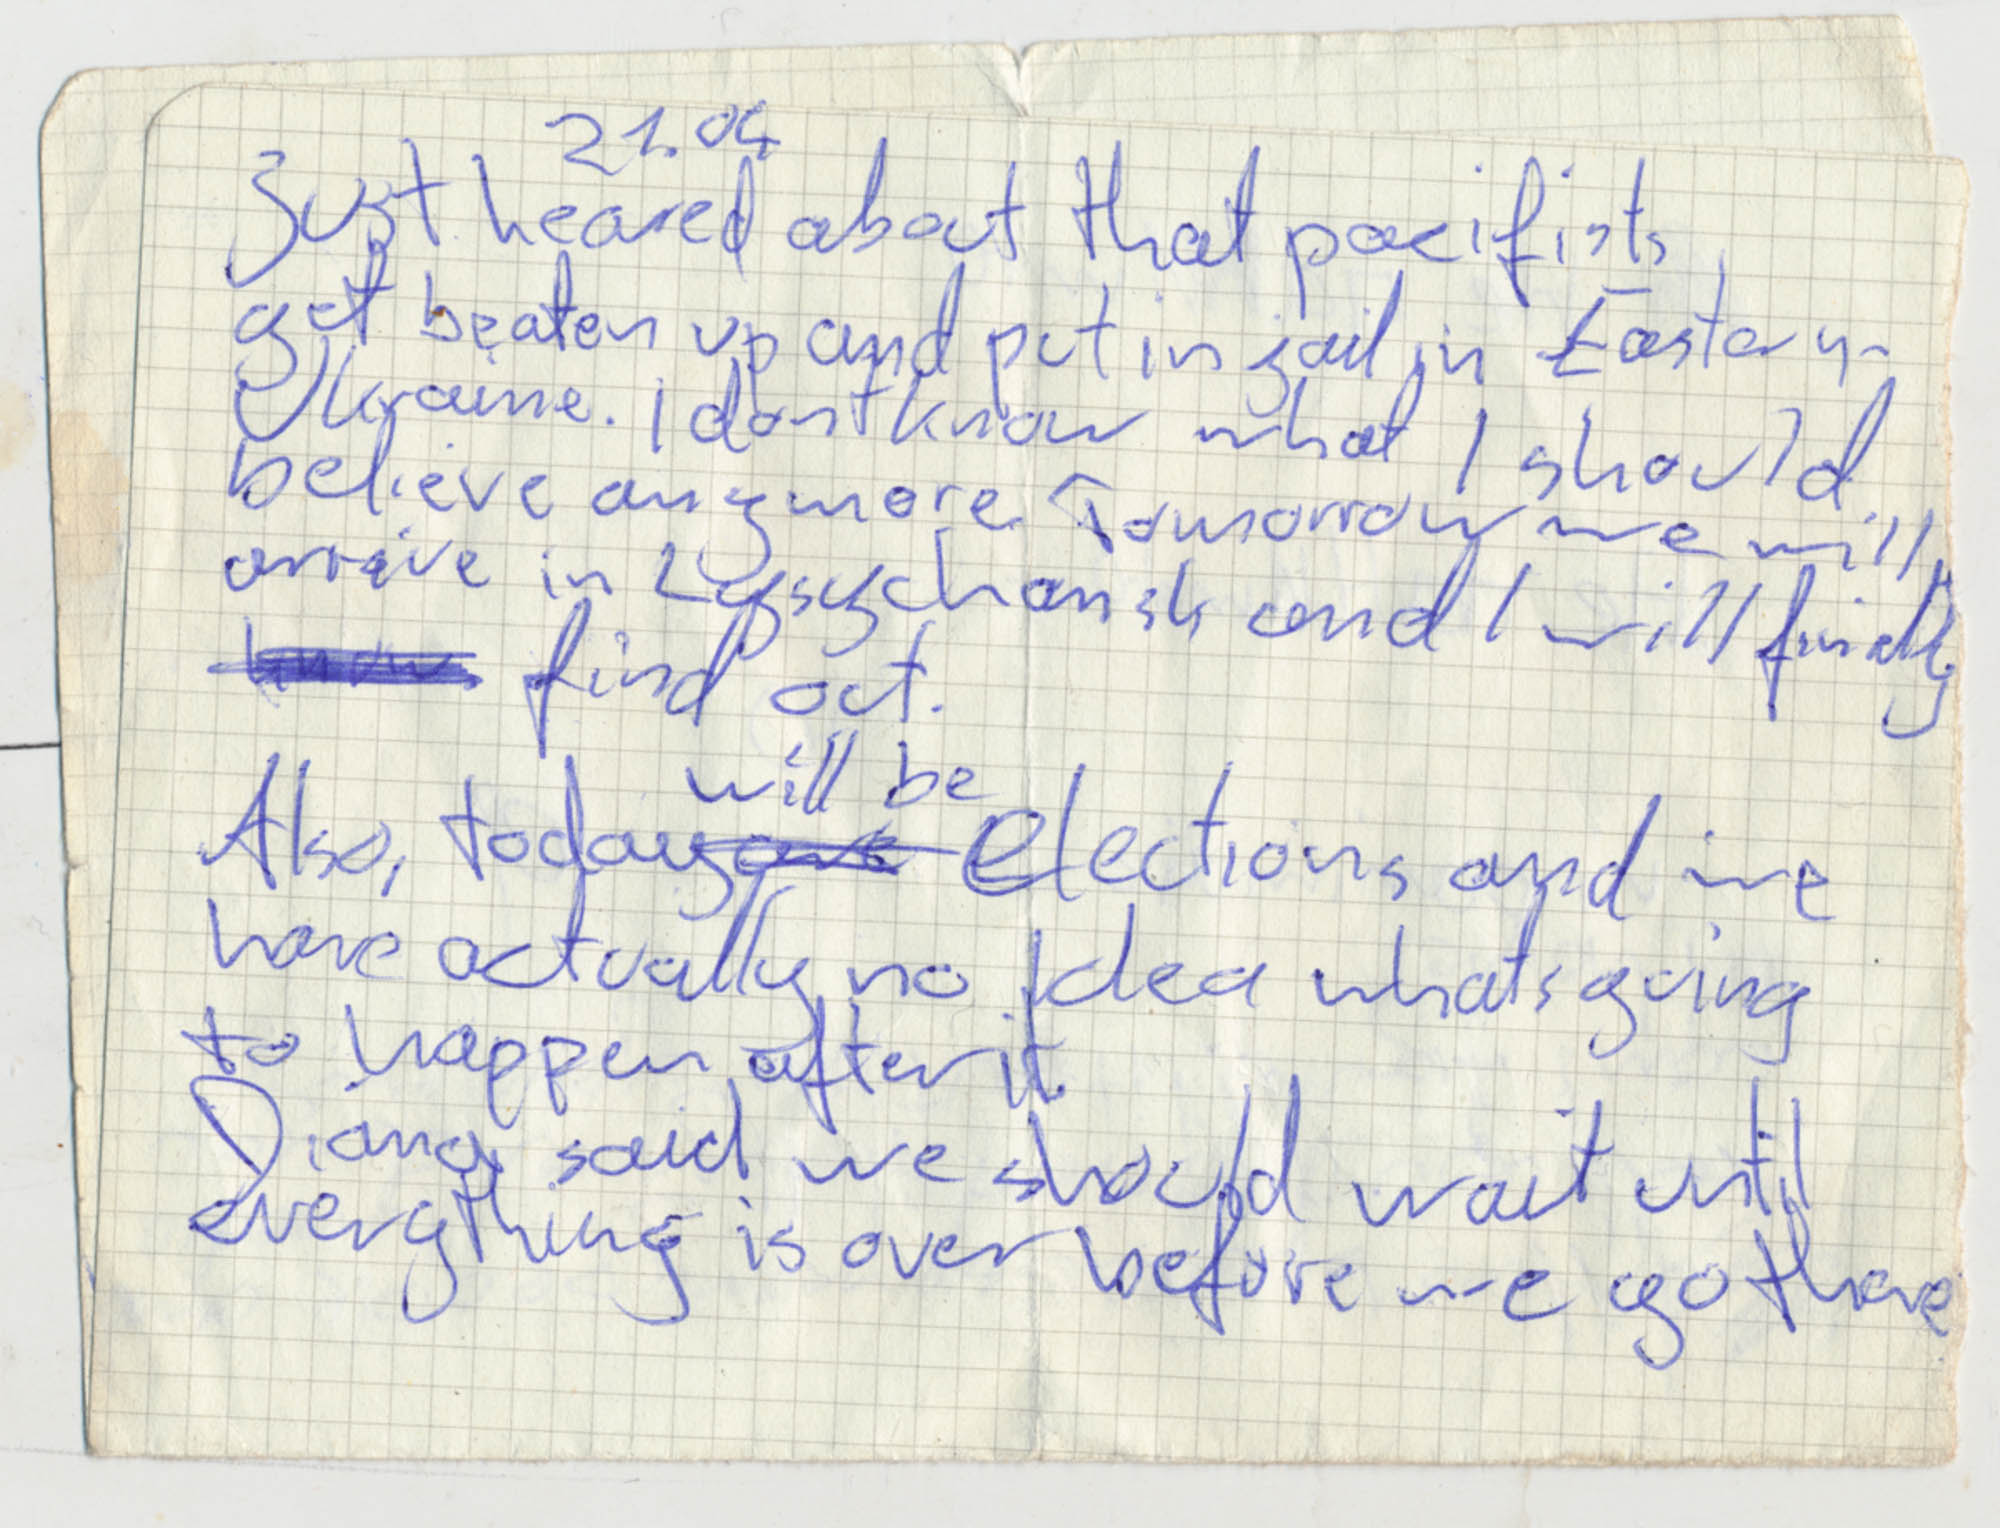 21.04
Just heared about that pacifists
get beaten up and put in jail in Eastern-
Ukraine. I dont know what I should
believe anymore. Tomorrow we will
arrive in Lysychansk and I will finally
know find out.
will be
Also, today are Elections and we
have actually no Idea whats going
to happen after it.
Diana said we should wait until
everything is over before we go there